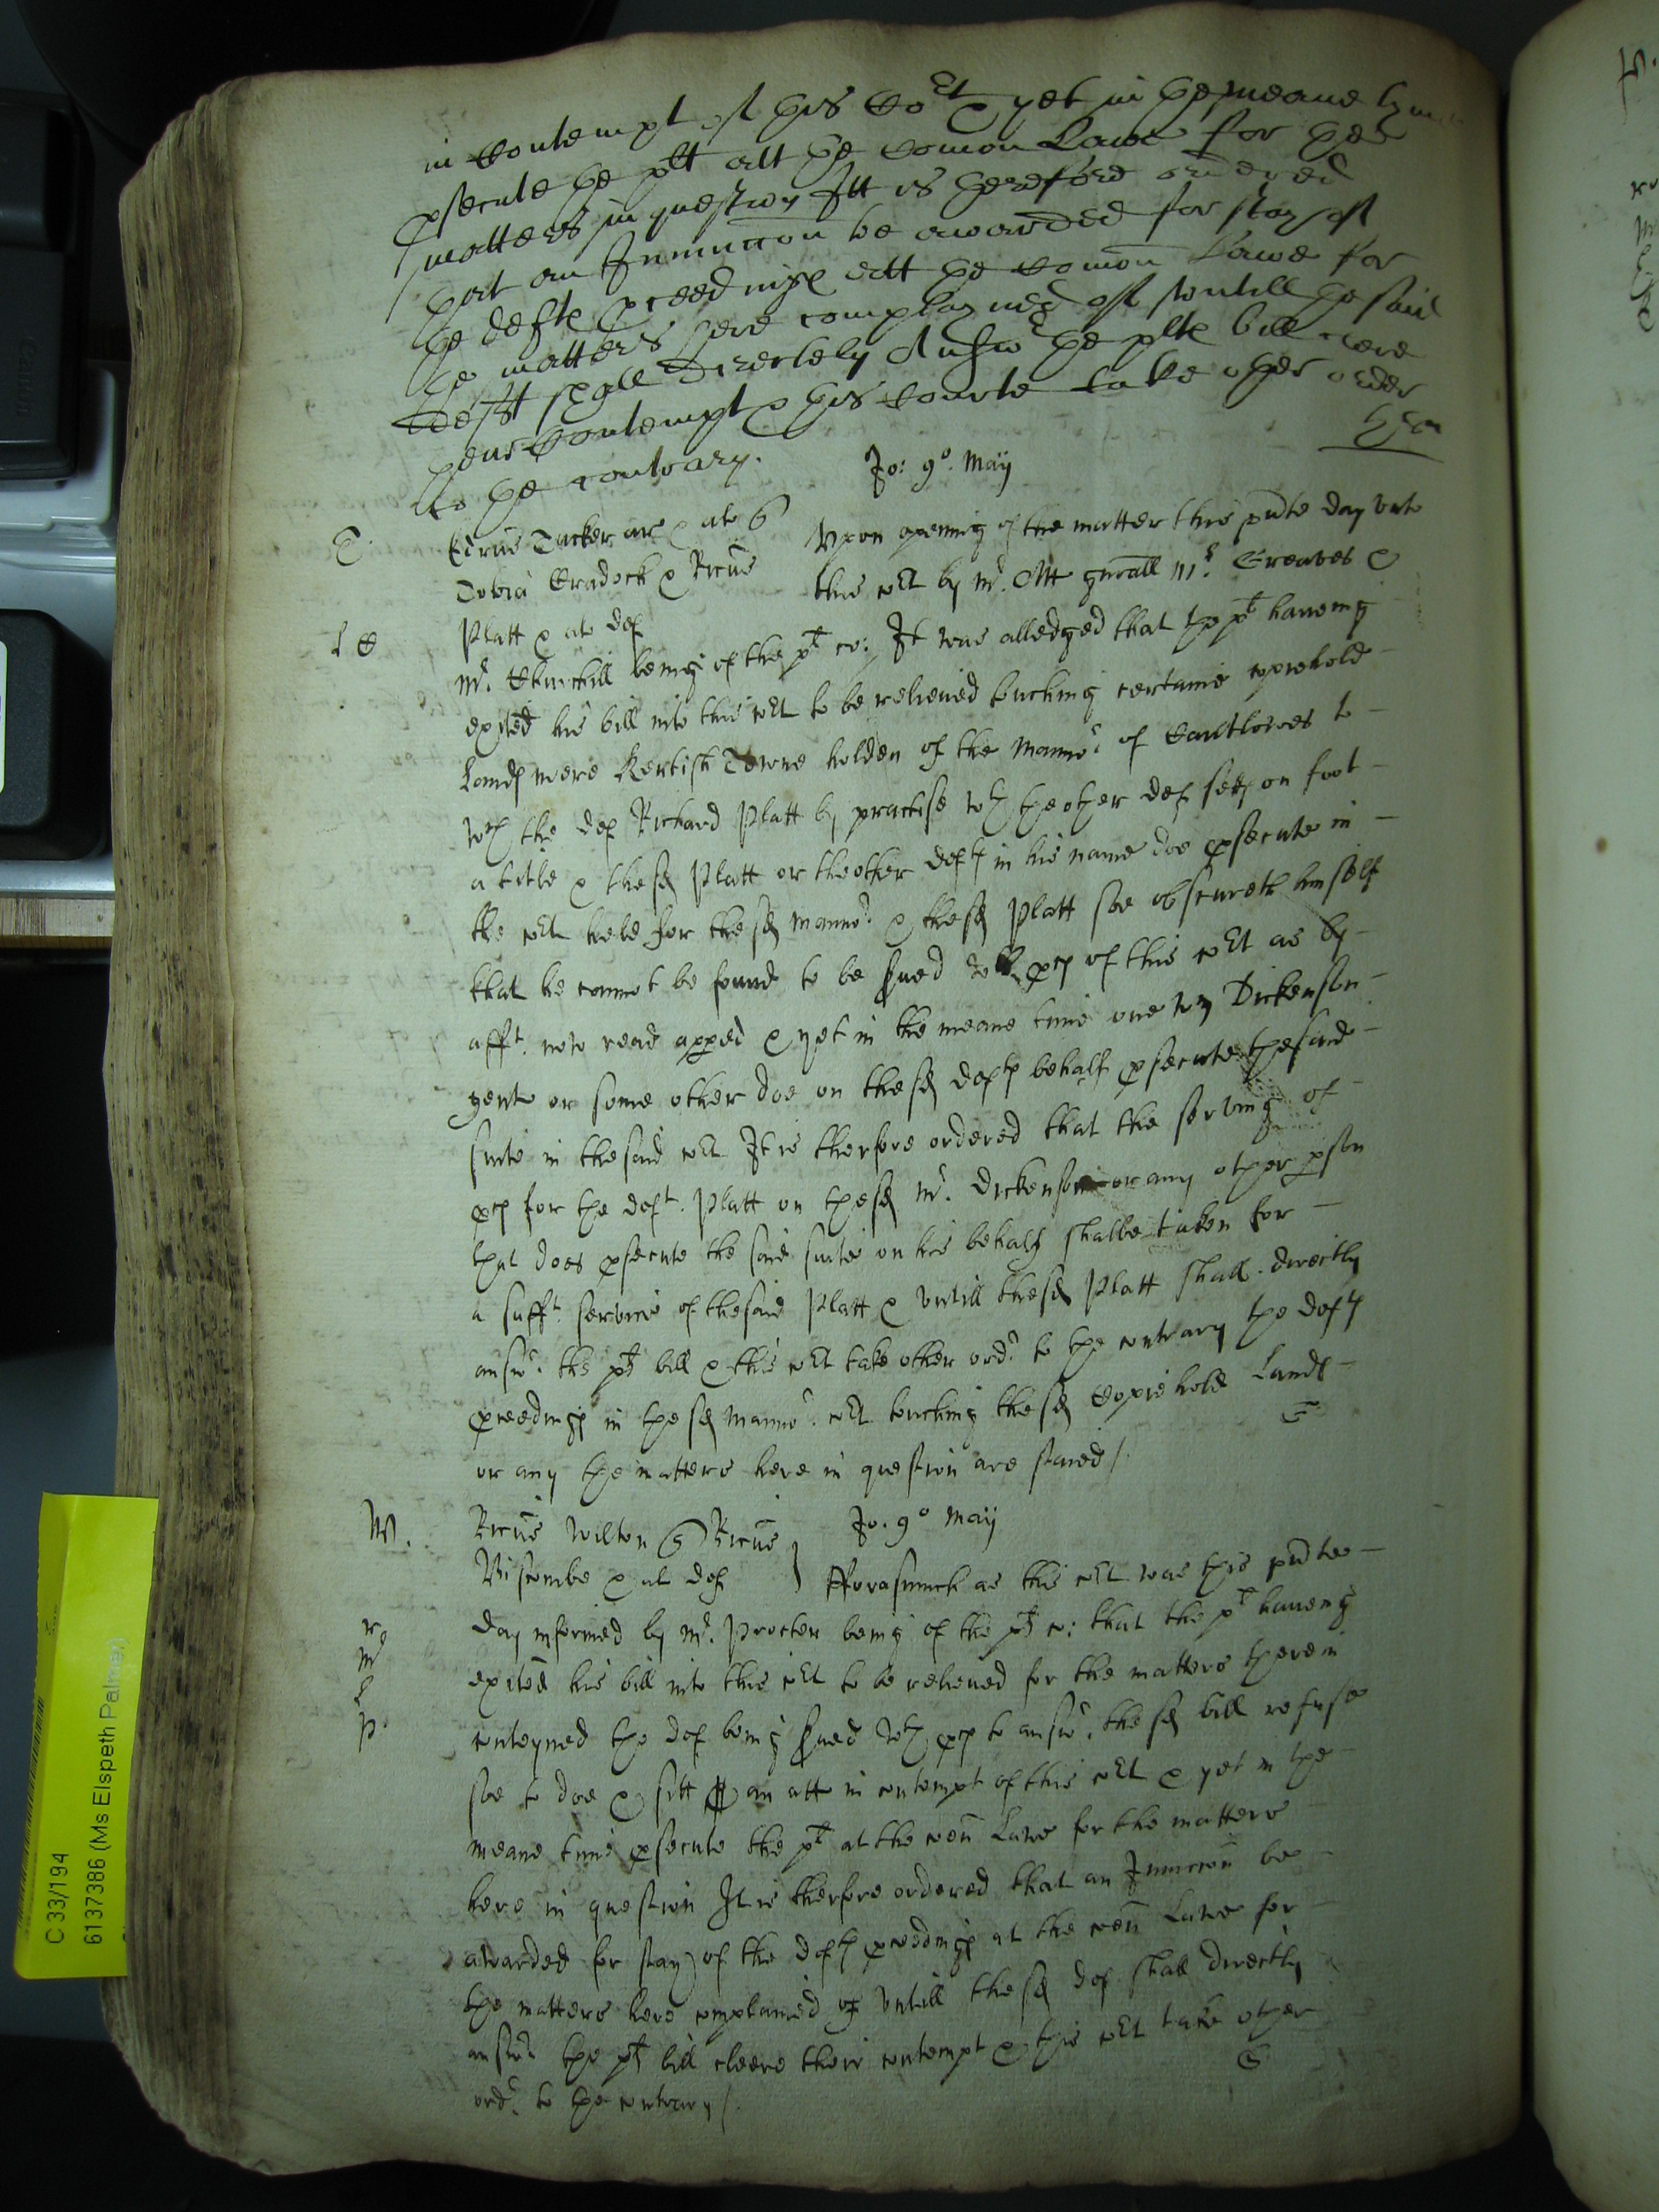 in Contempt of this Cort & yet in the meane tyme
psecute the plt att the Comon Lawe for the
matters in question Itt is therefore ordered
that an Iniunccon be awarded for stay of
the deftes pceedinges att the Comon Lawe for
the matters here complayned of untill the said
Deftes shall directely Answ the pltes bill cleere
their Contempt & this Courte take other order
to the contrary.
Jo: 9o. May
T. Tucker ar & al
Tobia Cradock & Ricus
Platt & al def
Upon opening of the matter this pnte day unto
this cort by Mr. Att gnrall Mr. Greaves &
Mr. Churchill being of the plt co: It was alledged that the plt haveing
exited his bill into this cort to be releived touching certaine copiehold
Landes neere Kentish Towne holden of the Manno of Cantlowes to
wch the def Richard Platt by practise wth the other def setts on foot
a title & the sd Platt or the other defts in his name doe psecute in
the cort held for the sd manno & the sd Platt soe obscureth himself
that he cannot be found to be served wth pces of this cort as by
afft. now read appeed & yet in the meane time one Wm Dickenson
gent or some other doe on the sd defts behalf psecute the said
suite in the said cort It is therfore ordered that the serving of
pces for the deft. Platt on the sd Mr. Dickenson or any other pson
that does psecute the said suite on his behalf shalbe taken for
a sufft service of the said Platt & untill the sd Platt shall directly
answ. the plts bill & this cort take other ord to the contrary the defts
pceedings in the sd manno. cort touching the sd Copiehold Landes
or any the matters here in question are staied /.
W. Ricus Wilton Ricus
Viscombe & al def
Jo. 9o May
Fforasmuch as this cort was this pnte
day informed by Mr. Procter being of the plts co: that the plt haveing
exited his bill into this cort to be releived for the matters therein
conteyned the def being served wth pces to answ. the sd bill refuse
soe to doe & sitt an att in contempt of this cort & yet in the
meane time psecute the plt at the coen Lawe for the matters
here in question It is therfore ordered that an Iniunccon be
awarded for stay of the defts pceedings at the coen Lawe for
the matters here complained of untill the sd def shall directly
answ the plts bill cleere their contempt & this cort take other
ord to the contrary /.
C 33/194
6137386 (Ms Elspeth Palmer)